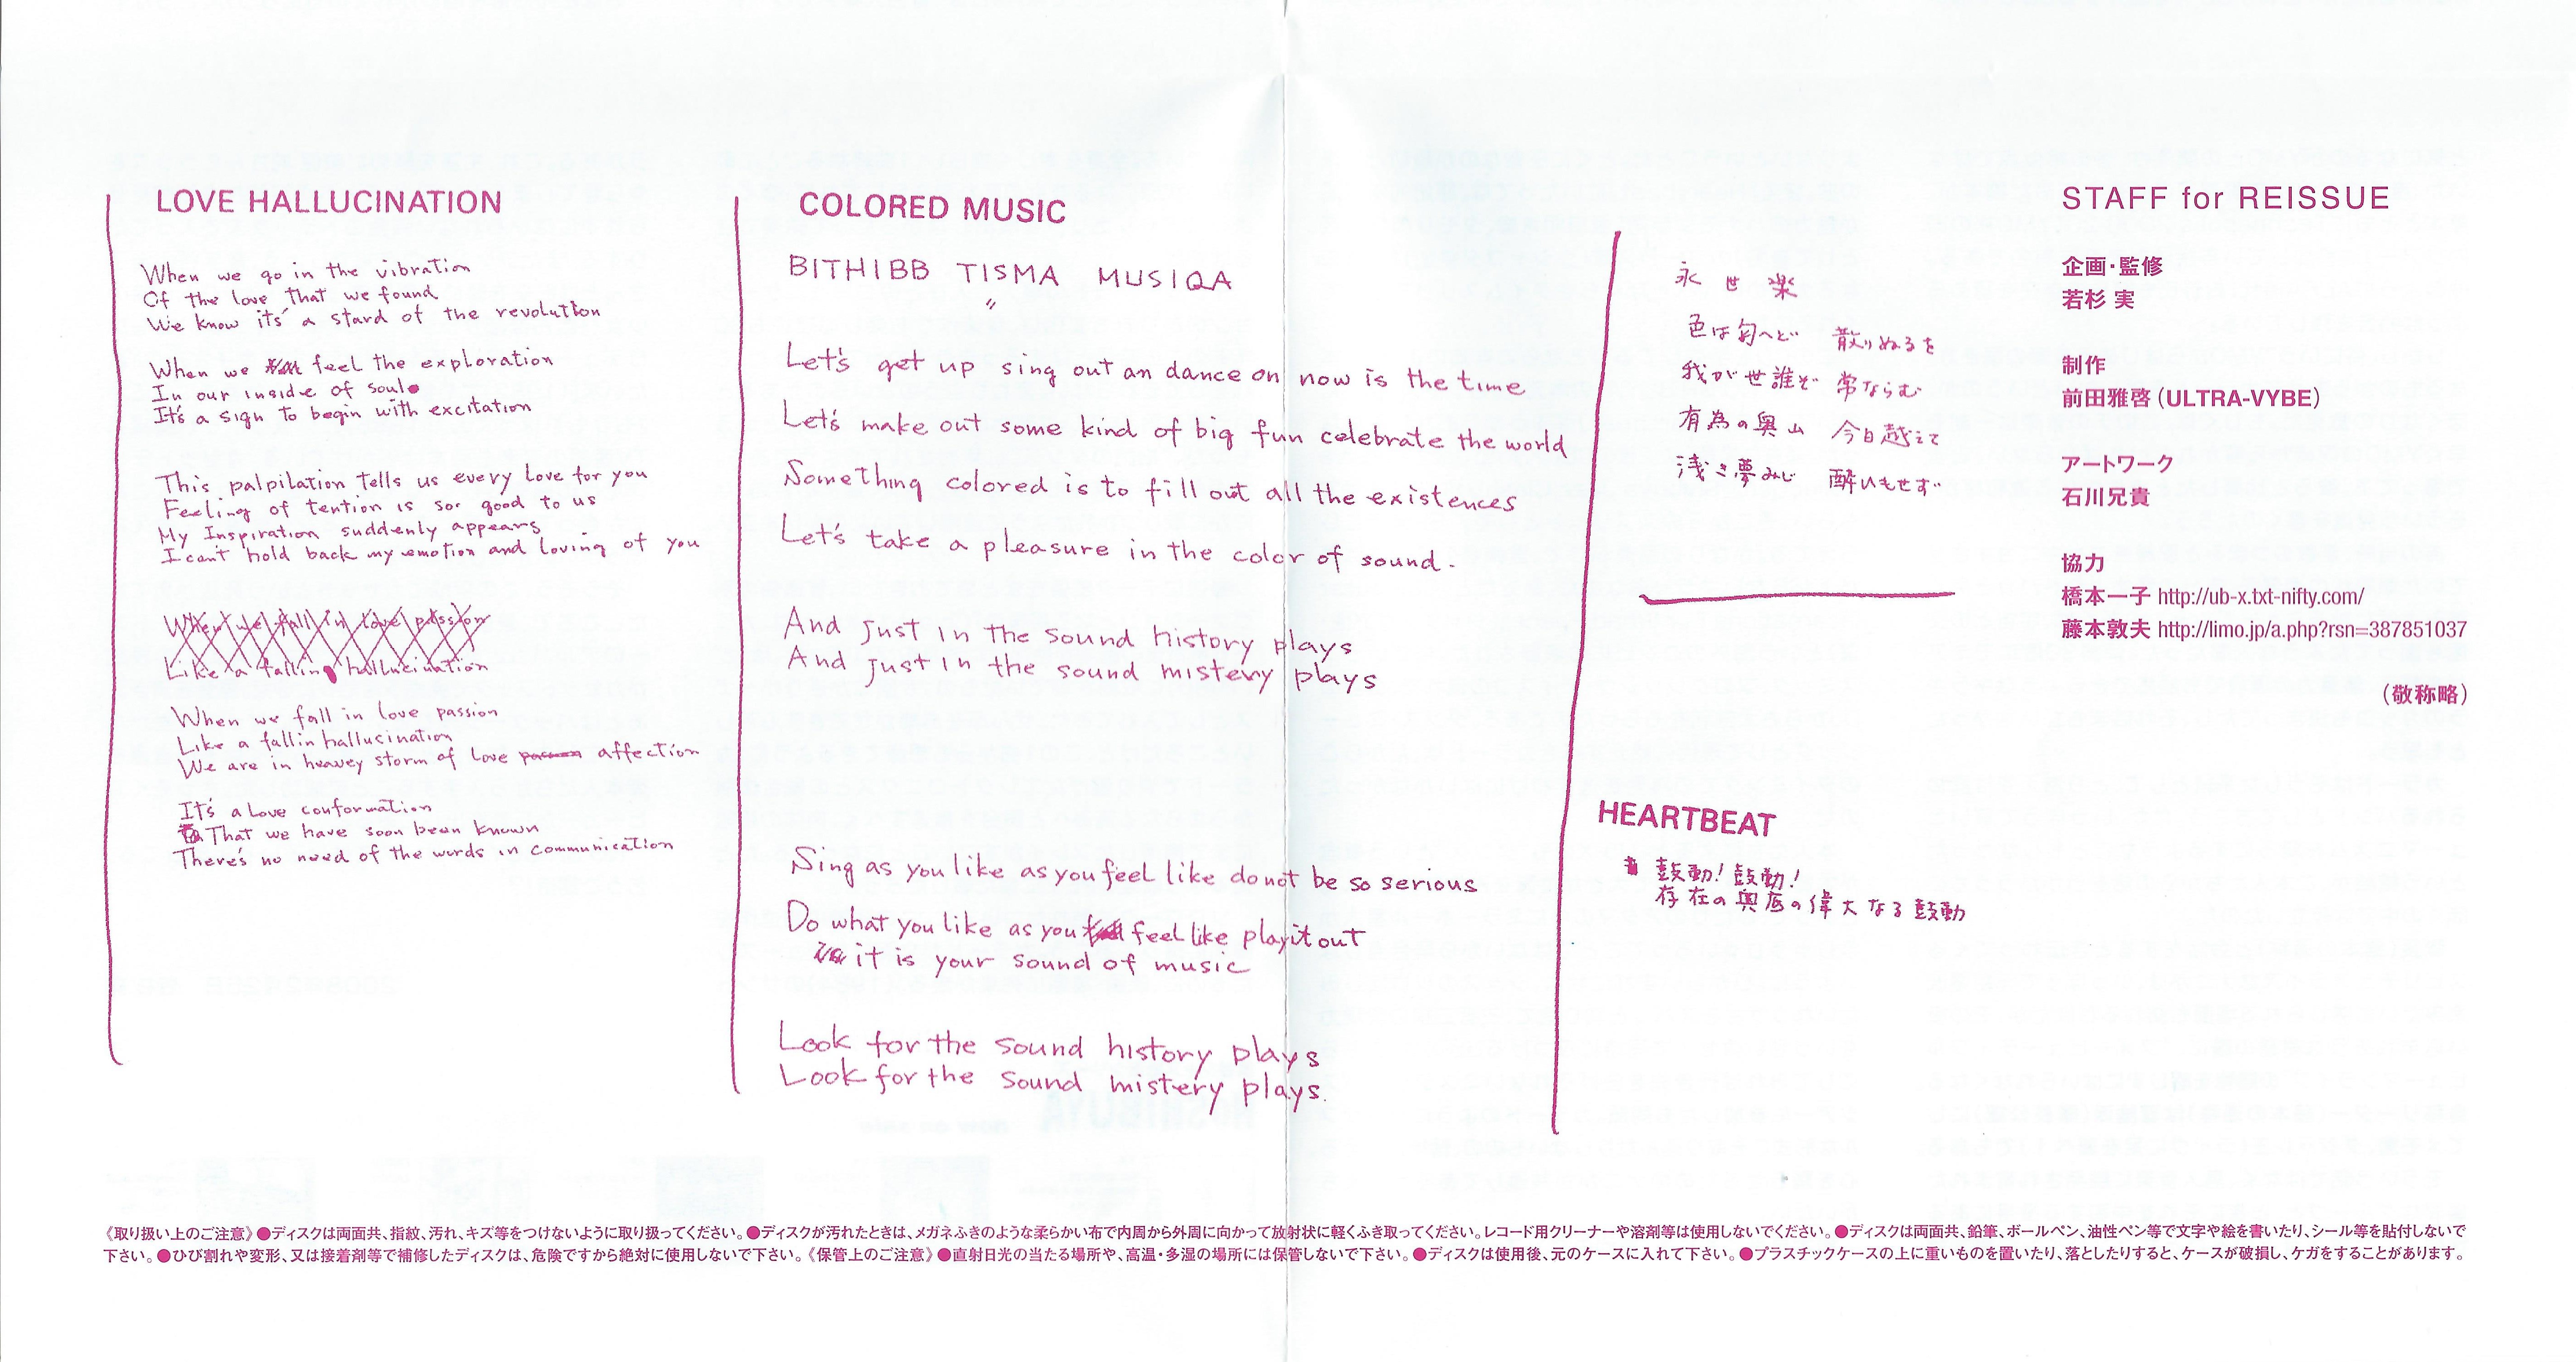 LOVE HALLUCINATION
When we go in the vibration
Of the love that we found
We know its' a stard of the revolution
When we feel the exploration
In our inside of soul
It's a sign to begin with excitation
This palpilation tells us every Love for you
Feeling of tention is so good to us
My Inspiration suddenly appears
I can't hold back my emotion and loving of you
When we fall in love passion
Like a falling hallucination
When we fall in love passion
Like a fallin hallucination
We are in heavey storm of love affection
It's a Love conformation
That we have soon been known
There's no need of the words in communication
COLORED MUSIC
BITHIBB TISMA MUSIQA
〃
Let's get up sing out an dance on now is the time
Let's make out some kind of big fun celebrate the world
Something colored is to fill out all the existences
Let's take a pleasure in the color of sound.
And just in the sound history plays
And just in the sound mistery plays
Sing as you like as you feel like do not be so serious
Do what you like as you feel like play it out
it is your sound of music
Look for the sound history plays
Look for the sound mistery plays.
永世楽
色は匂へど 散りぬるを
我が世誰ぞ 常ならむ
有為の奥山 今日越えて
浅き夢みじ 酔いもせず
HEARTBEAT
鼓動!鼓動!
存在の奥底の偉大なる鼓動
STAFF for REISSUE
企画・監修
若杉 実
制作
前田雅啓(ULTRA-VYBE)
アートワーク
石川兄貴
協力
橋本一子 http://ub-x.txt-nifty.com/
藤本敦夫 http://limo.jp/a.php?rsn=387851037
(敬称略)
《取り扱い上のご注意》●ディスクは両面共、指紋、汚れ、キズ等をつけないように取り扱ってください。●ディスクが汚れたときは、メガネふきのような柔らかい布で内周から外周に向かって放射状に軽くふき取ってください。レコード用クリーナーや溶剤等は使用しないでください。●ディスクは両面共、鉛筆、ボールペン、油性ペン等で文字や絵を書いたり、シール等を貼付しないで
下さい。●ひび割れや変形、又は接着剤等で補修したディスクは、危険ですから絶対に使用しないで下さい。《保管上のご注意》●直射日光の当たる場所や、高温・多湿の場所には保管しないで下さい。●ディスクは使用後、元のケースに入れて下さい。●プラスチックケースの上に重いものを置いたり、落としたりすると、ケースが破損し、ケガをすることがあります。